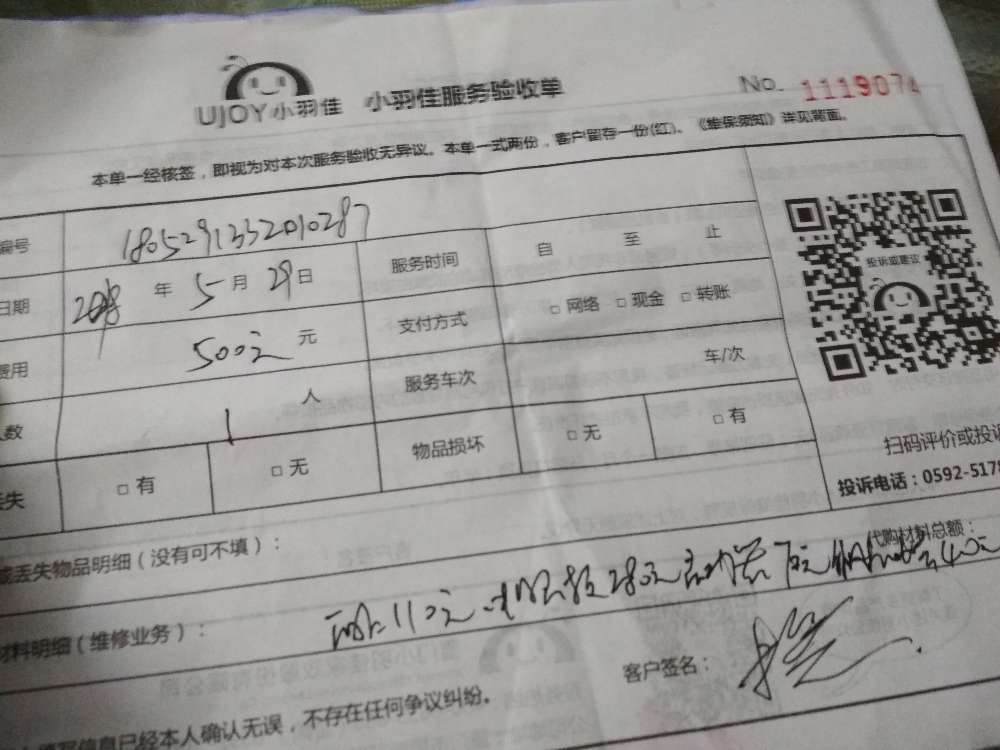 UJOY小羽佳 小羽佳服务验收单 No. 1119074
本单一经核签，即视为对本次服务验收无异议。本单一式两份，客户留存一份(红)、《维保须知》详见背面。
编号 1805291332010287
日期 2018 年 5 月 29 日 服务时间 自 至 止
费用 500元 元 支付方式 □ 网络 □ 现金 □ 转账
人数 1 人 服务车次 车/次
丢失 □ 有 □ 无 物品损坏 □ 无 □ 有
投诉或建议
扫码评价或投诉
投诉电话：0592-5178
或丢失物品明细（没有可不填）：
代购材料总额：
材料明细（维修业务）： 110元 280元 40元
客户签名：
填写信息已经本人确认无误，不存在任何争议纠纷。